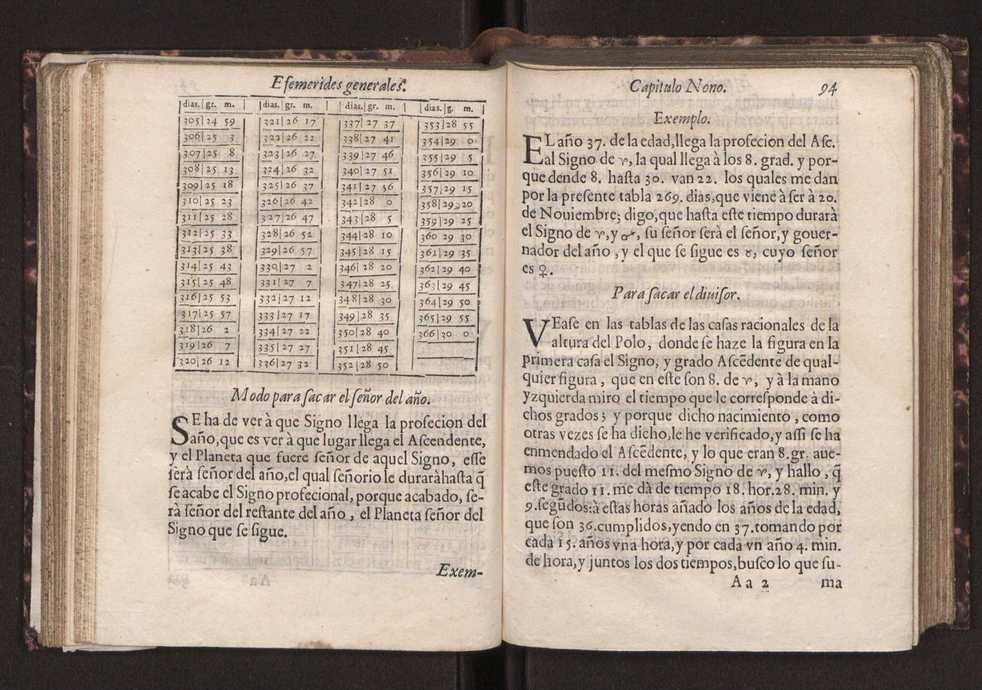 Efemerides generales.
dias. gr. m. | dias. gr. m. | dias. gr. m. | dias. g. m.
305|24 59 | 321|26 17 | 337|27 37 | 353|28 55
306|25 3 | 322|26 22 | 338|27 41 | 354|29 0
307|25 8 | 323|26 27 | 339|27 46 | 355|29 5
308|25 13 | 324|26 32 | 340|27 51 | 356|29 10
309|25 18 | 325|26 37 | 341|27 56 | 357|29 15
310|25 23 | 326|26 42 | 342|28 0 | 358|29 20
311|25 28 | 327|26 47 | 343|28 5 | 359|29 25
312|25 33 | 328|26 52 | 344|28 10 | 360 29 30
313|25 38 | 329|26 57 | 345|28 15 | 361|29 35
314|25 43 | 330|27 2 | 346|28 20 | 362|29 40
315|25 48 | 331|27 7 | 347|28 25 | 363|29 45
316|25 53 | 332|27 12 | 348|28 30 | 364|29 50
317|25 57 | 333|27 17 | 349|28 35 | 365|29 55
318|26 2 | 334|27 22 | 350|28 40 | 366|30 0
319|26 7 | 335|27 27 | 351|28 45
320|26 12 | 336|27 32 | 352|28 50
Modo para sacar el señor del año.
SE ha de ver à que Signo llega la profecion del
año, que es ver à que lugar llega el Ascendente,
y el Planeta que fuere señor de aquel Signo, esse
serà señor del año, el qual señorio le duraràhasta q̃
se acabe el Signo profecional, porque acabado, se-
rà señor del restante del año, el Planeta señor del
Signo que se sigue.
Exem-
Capitulo Nono. 94
Exemplo.
EL año 37. de la edad, llega la profecion del Asc.
al Signo de ♈, la qual llega à los 8. grad. y por-
que dende 8. hasta 30. van 22. los quales me dan
por la presente tabla 269. dias, que viene à ser à 20.
de Nouiembre; digo, que hasta este tiempo durarà
el Signo de ♈, y ♂, su señor serà el señor, y gouer-
nador del año, y el que se sigue es ♉, cuyo señor
es ♀.
Para sacar el diuisor.
VEase en las tablas de las casas racionales de la
altura del Polo, donde se haze la figura en la
primera casa el Signo, y grado Ascẽdente de qual-
quier figura, que en este son 8. de ♈, y à la mano
yzquierda miro el tiempo que le corresponde à di-
chos grados; y porque dicho nacimiento, como
otras vezes se ha dicho, le he verificado, y assi se ha
enmendado el Ascẽdente, y lo que eran 8. gr. aue-
mos puesto 11. del mesmo Signo de ♈, y hallo, q̃
este grado 11. me dà de tiempo 18. hor. 28. min. y
9. segũdos: à estas horas añado los años de la edad,
que son 36. cumplidos, yendo en 37. tomando por
cada 15. años vna hora, y por cada vn año 4. min.
de hora, y juntos los dos tiempos, busco lo que su-
Aa 2 ma